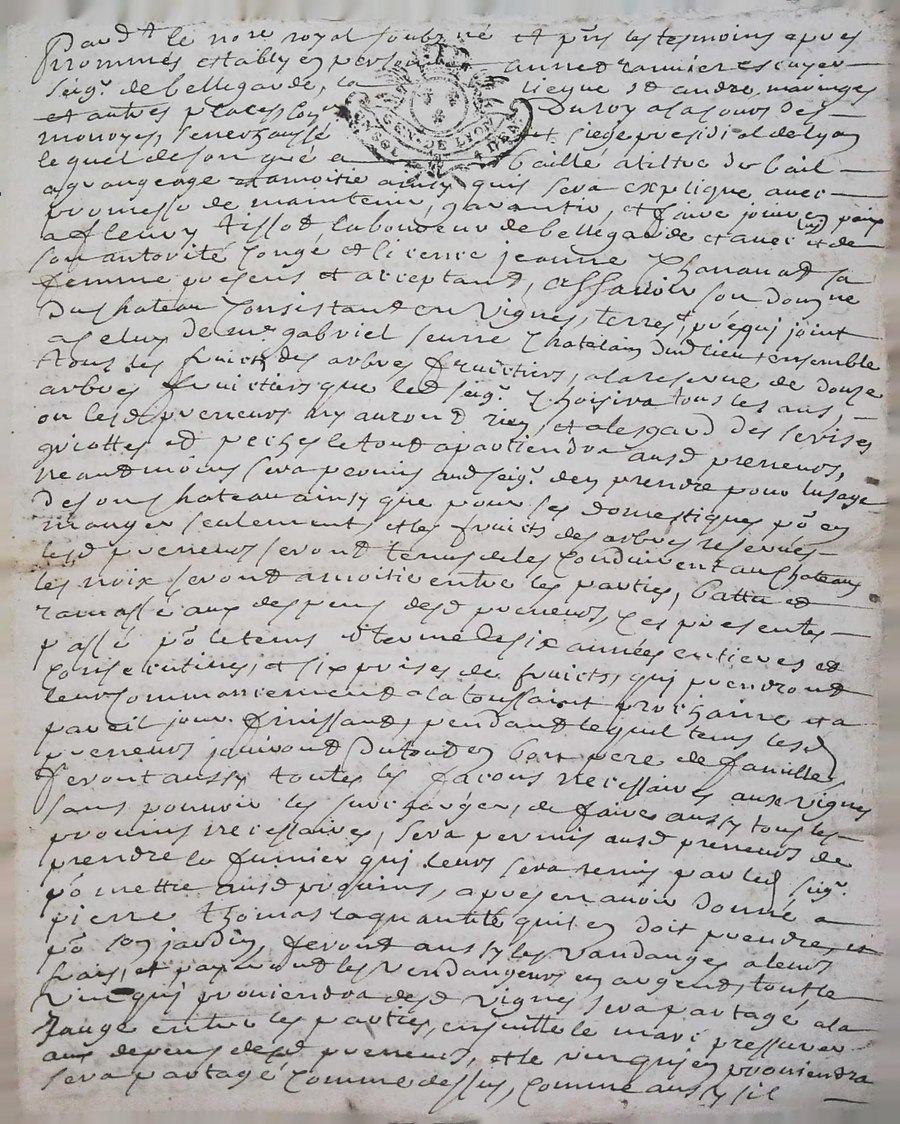 Pard.t le no.re royal soubz.né et p̃ns les tesmoins apres
nommés estably en personne
seig.r de bellegarde, la liegue st andre, maringes
et autres places, du roy a la cour des
monoyes, senechaussé et siege presidial de lyon
lequel de son gré a baillé a tiltre de bail
a grangeage et a moitie ainsy quil sera expliqué avec
promesse de maintenir, garantir, et faire jouir en paix
a fleury tissot laboureur de bellegarde et avec luy et de
son autorité congé et licence jeanne sa
femme presens et acceptant, assavoir son domaine
du chateau consistant en vignes, terres, pré qui joint
a celuy de m.re gabriel chatelain dud lieu ensemble
tous les fruicts des arbres fruictiers, a la reserve de douze
arbres fruictiers que led seig.r choisira tous les ans,
ou lesd preneurs ny auront rien, et a lesgard des serises
griottes et peches le tout apartiendra ausd preneurs,
neantmoins sera permis aud seig.r den prendre pour lusage
de son chateau ainsy que pour ses domestiques po en
manger seulement, et les fruicts des arbres reservés
lesd preneurs seront tenus de les conduire au chateau
les noix seront a moitie entre les parties, battu et
ramassé aux despens desd preneurs, ces presentes
passé po le tems et terme de six années entieres et
consecutives, et six prises de fruicts, qui prendront
leur commancement a la toussaint prochaine et a
pareil jour finissant, pendant lequel tems lesd
preneurs jouiront du tout en bon pere de famille
feront aussy toutes les façons necessaires aux vignes
sans pouvoir les surcharger, de faire aussy tous les
provins necessaires, sera permis ausd preneurs de
prendre le fumier qui leurs sera remis par led seig.r
po mettre ausd provins, apres en avoir donné a
pierre thomas la quantité quil en doit prendre
po son jardin, feront aussy les vandanges a leurs
frais, et payeront les vendangeurs en argent, tout le
vin qui proviendra desd vignes sera partagé a la
entre les parties, ensuitte le marc pressurer
aux depens desd preneurs, et le vin qui en proviendra
sera partagé comme dessus, comme aussy sil